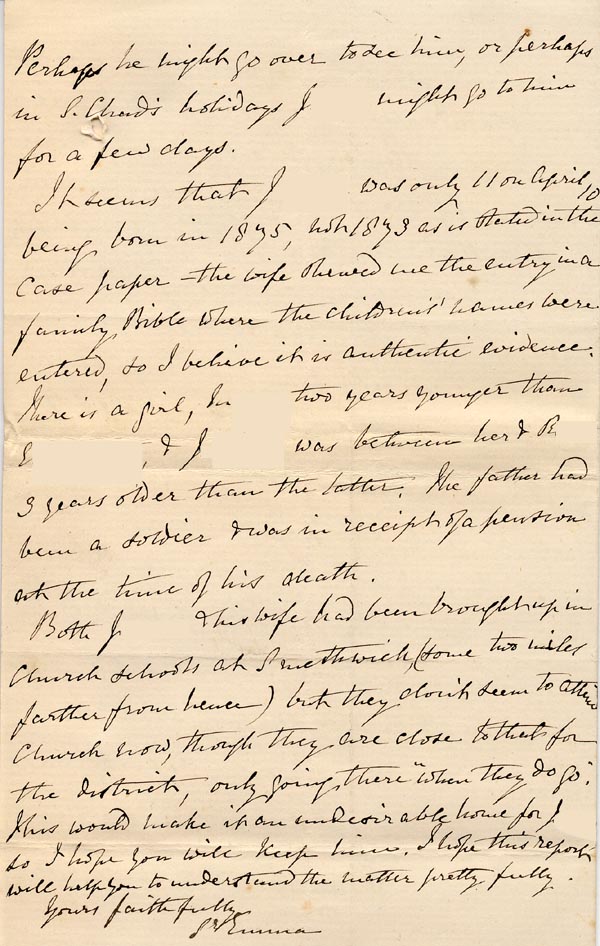 Perhaps he might go over to see him, or perhaps
in S. Chad's holidays J might go to him
for a few days.
It seems that J was only 11 on April 10
being born in 1875, not 1873 as is stated in the
Case paper – the wife shewed me the entry in a
family Bible where the children's names were
entered, so I believe it is authentic evidence.
There is a girl, two years younger than
E , & J was between her & B
3 years older than the latter. The father had
been a soldier & was in receipt of a pension
at the time of his death.
Both J & his wife had been brought up in
Church schools at Smethwick, (some two miles
farther from hence) but they don't seem to attend
Church now, though they are close to that for
the district, only going there "when they do go".
This would make it an undesirable home for J
so I hope you will keep him. I hope this report
will help you to understand the matter pretty fully.
Yours faithfully
Sr Emma